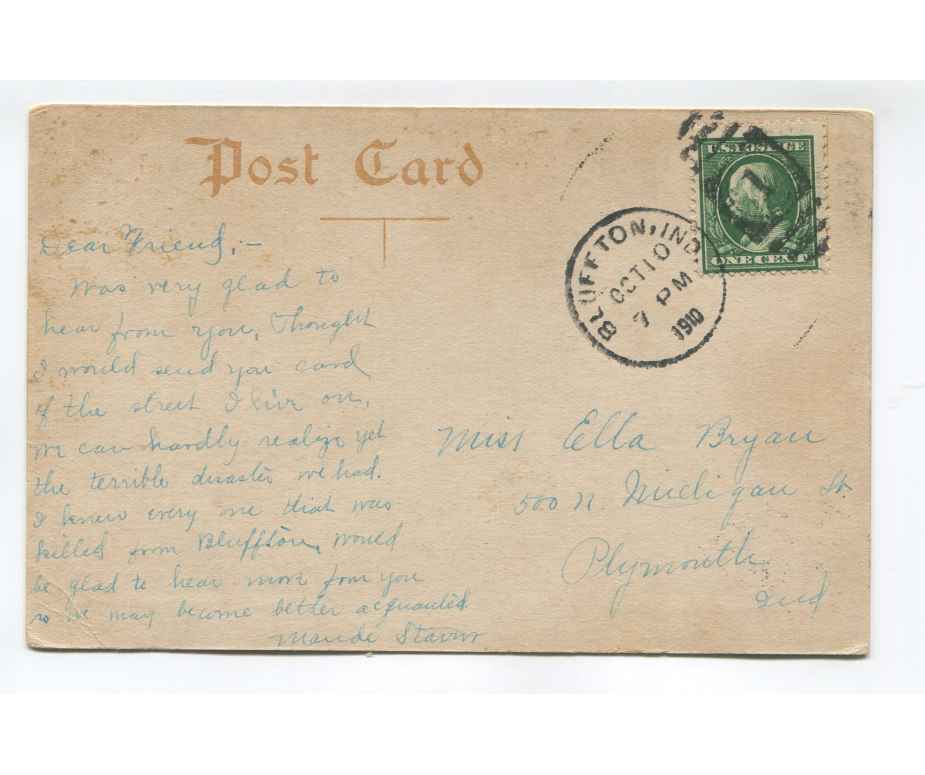 Post Card
U.S. POSTAGE
ONE CENT
BLUFFTON, IND.
OCT 10
7 PM
1910
Dear Friend,—
Was very glad to
hear from you, Thought
I would send you card
of the street I live on,
we can hardly realize yet
the terrible disaster we had.
I knew every one that was
killed from Bluffton, would
be glad to hear more from you
so we may become better acquainted
Maude
Miss Ella Bryan
500 N. Michigan St.
Plymouth
Ind